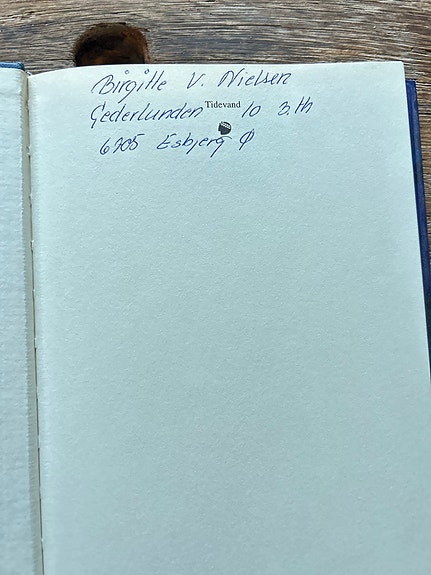 Birgitte V. Nielsen
Gederlunden 10 3.th
Tidevand
6705 Esbjerg Ø